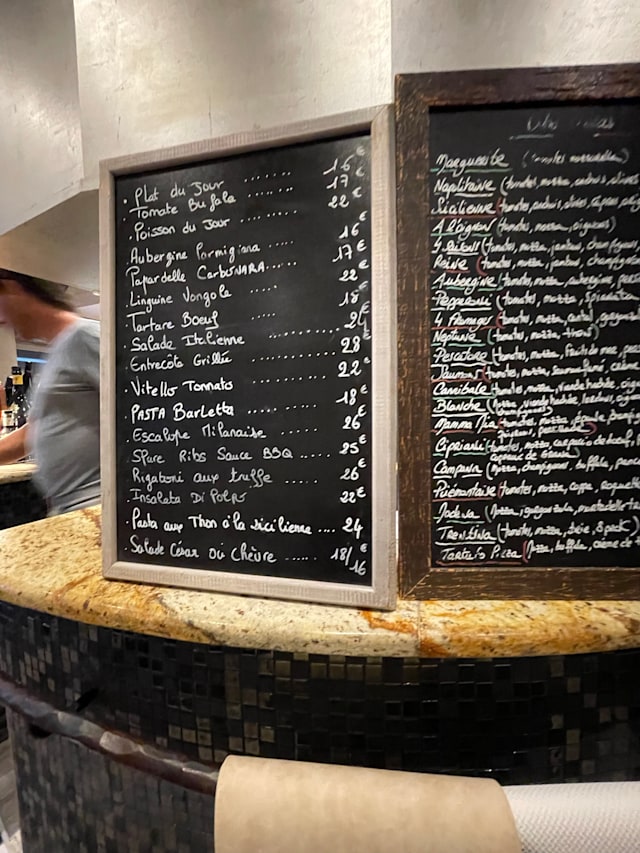 . Plat du Jour ....... 16€
Tomate Bufala ....... 17€
. Poisson du Jour ......... 22€
. Aubergine Parmigiana ..... 16€
Papardelle CARBONARA .... 17€
. Linguine Vongole ..... 22€
. Tartare Boeuf ...... 18€
. Salade Italienne
. Entrecôte Grillée ............ 28€
. Vitello Tonnato .......... 22€
. PASTA Barletta ......... 18€
. Escalope Milanaise ........ 26€
. Spare Ribs Sauce BBQ ..... 25€
. Rigatoni aux truffe ..... 26€
. Insalata Di Polpo 22€
. Pasta aux Thon à la sicilienne .... 24
. Salade César ou Chèvre ...... 18/16€
Marguerite (tomates mozzarella)
Napolitaine (tomates, mozza, anchois, olives
Sicilienne (tomates, anchois, olives, câpres
4 Saisons (tomates, mozza, jambon, champignons
Reine (tomates, mozza, jambon, champignons
Aubergine (tomates, mozza, aubergine,
Pepperoni (tomates, mozza,
4 Fromages (tomates, mozza,
Neptune (tomates, mozza, thon)
Pescatore (tomates, mozza, fruits de mer,
Saumon (tomates, mozza, saumon fumé, crème
Cannibale (tomates, mozza, viande hachée,
Blanche (mozza, viande hachée, lardons,
Mamma Mia (tomates, mozza,
Cipriani (tomates, mozza, carpaccio de boeuf,
Campana (mozza, champignons, buffala,
Piémontaise (tomates, mozza, coppa, roquette
(mozza, gorgonzola, mortadelle
Trentina (tomates, mozza, brie, speck)
Tartufo Pizza (mozza, buffala, crème de